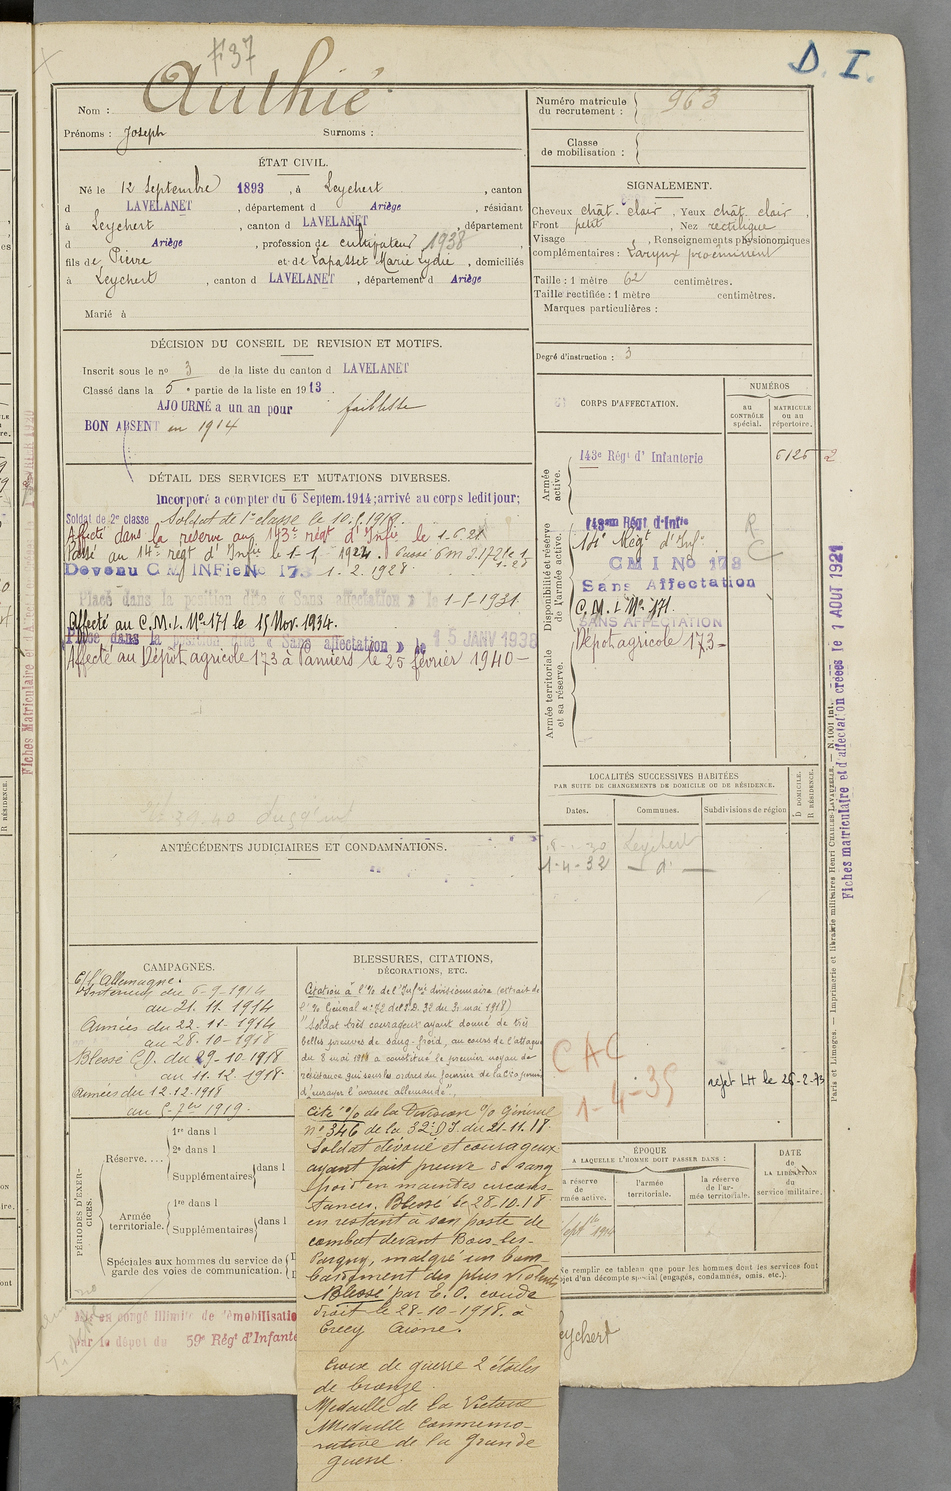 F37
D. I.
Nom : Authié
Prénoms : Joseph Surnoms :
Numéro matricule du recrutement : 963
Classe de mobilisation :
ÉTAT CIVIL.
Né le 12 Septembre 1893, à Leychert, canton
d LAVELANET, département d Ariège, résidant
à Leychert, canton d LAVELANET, département
d Ariège, profession de cultivateur 1938
fils de Pierre et de Lapasset Marie Lydie, domiciliés
à Leychert, canton d LAVELANET, département d Ariège
Marié à
SIGNALEMENT.
Cheveux chât. clair, Yeux chât. clair,
Front petit, Nez rectiligne
Visage , Renseignements physionomiques
complémentaires : Larynx proéminent
Taille : 1 mètre 62 centimètres.
Taille rectifiée : 1 mètre centimètres.
Marques particulières :
Degré d'instruction : 3
DÉCISION DU CONSEIL DE REVISION ET MOTIFS.
Inscrit sous le no 3 de la liste du canton d LAVELANET
Classé dans la 5e partie de la liste en 1913.
AJOURNÉ a un an pour faiblesse
BON ABSENT en 1914
CORPS D'AFFECTATION.
NUMÉROS
au CONTRÔLE spécial.
MATRICULE ou au répertoire.
Armée active.
143e Régt d' Infanterie 6126
Disponibilité et réserve de l'armée active.
143eme Régt d'Infie
14e Régt d'Infie
C M I No 173
Sans Affectation
C.M.I. No 171.
SANS AFFECTATION
Dépot agricole 173-
Armée territoriale et sa réserve.
DÉTAIL DES SERVICES ET MUTATIONS DIVERSES.
Incorporé a compter du 6 Septem. 1914; arrivé au corps ledit jour;
Soldat de 2e classe Soldat de 1e classe le 10.8.1919.
Affecté dans la réserve au 143e régt d'Infie le 1-6-21
Passé au 14e régt d'Infie le 1-1-1924.
Devenu C M INFie No 173 1-2.1928
Placé dans la position dite « Sans affectation » le 1-1-1931
Affecté au C.M.I. No 171 le 15 Nov. 1934.
Placé dans la position dite « Sans affectation » le 15 JANV 1938
Affecté au Dépot agricole 173 à Pamiers le 25 février 1940-
ANTÉCÉDENTS JUDICIAIRES ET CONDAMNATIONS.
LOCALITÉS SUCCESSIVES HABITÉES
PAR SUITE DE CHANGEMENTS DE DOMICILE OU DE RÉSIDENCE.
Dates. Communes. Subdivisions de région D DOMICILE. R RÉSIDENCE.
Leychert
1-4-32 — d° —
CAMPAGNES.
C/ l'Allemagne.
Intérieur du 6-9-1914
au 21.11.1914
Armées du 22-11-1914
au 28-10-1918
Blessé C.D. du 29-10-1918
au 11.12.1918.
Armées du 12.12.1918
BLESSURES, CITATIONS,
DÉCORATIONS, ETC.
Citation à l'O. de l'Infie divisionnaire (extrait de
l'O. Général no 72 de l'I.D. 32 du 31 mai 1918)
"Soldat très courageux ayant donné de très
belles preuves de sang-froid, au cours de l'attaque
du 8 mai 1918 a constitué le premier noyau de
résistance qui sous les ordres du fourrier de la Cie a permis
d'enrayer l'avance allemande".
Cité %o de la Division %o Général
no 346 de la 32e D.I. du 21-11.18.
Soldat dévoué et courageux
ayant fait preuve de sang
froid en maintes circons-
tances. Blessé le 28-10-18
en restant à son poste de
combat devant Bois-les-
Pargny, malgré un bom-
bardement des plus violents
Blessé par E.O. coude
droit le 28-10-1918. à
Crécy Aisne.
Croix de guerre 2 étoiles
de bronze.
Médaille de la Victoire
Médaille commémo-
rative de la grande
guerre.
CAC
1-4-35
rejet LH le 26-2-73
PÉRIODES D'EXERCICES.
Réserve....
1re dans l
2e dans l
Supplémentaires dans l
Armée territoriale.
1re dans l
Supplémentaires dans l
Spéciales aux hommes du service de
garde des voies de communication.
ÉPOQUE
A LAQUELLE L'HOMME DOIT PASSER DANS :
la réserve de l'armée active.
l'armée territoriale.
la réserve de l'armée territoriale.
DATE de LA LIBÉRATION du service militaire.
Ne remplir ce tableau que pour les hommes dont les services font
objet d'un décompte spécial (engagés, condamnés, omis, etc.).
Mis en congé illimité de démobilisatio
par le dépôt du 59e Régt d'Infante
Leychert
Fiches matriculaire et d'affectation créées le 1 AOUT 1921
Paris et Limoges. — Imprimerie et librairie militaires Henri CHARLES-LAVAUZELLE. — N. 1001 int.